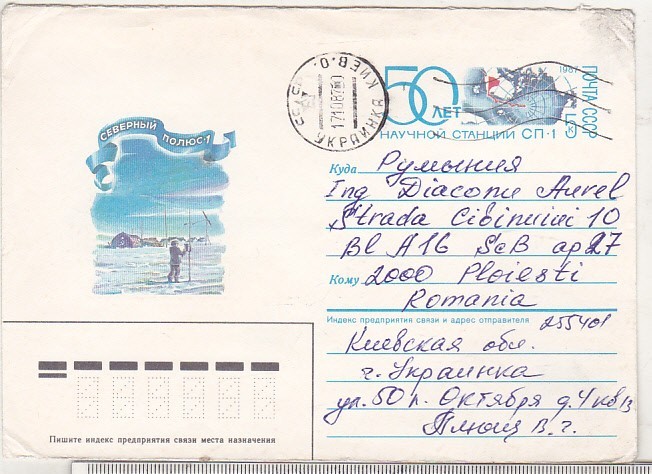 СЕВЕРНЫЙ ПОЛЮС-1
УКРАИНКА КИЕВ.О.
17108700
50 ЛЕТ
НАУЧНОЙ СТАНЦИИ СП-1
1987
ПОЧТА СССР
Куда Румыния
Ing Diaconu Aurel
Strada Cibinului 10
Bl A16 ScB ap 27
Кому 2000 Ploiesti
Romania
Индекс предприятия связи и адрес отправителя
255401
Киевская обл.
г. Украинка
ул. 50 л. Октября д. 4 кв 13
В. г.
Пишите индекс предприятия связи места назначения